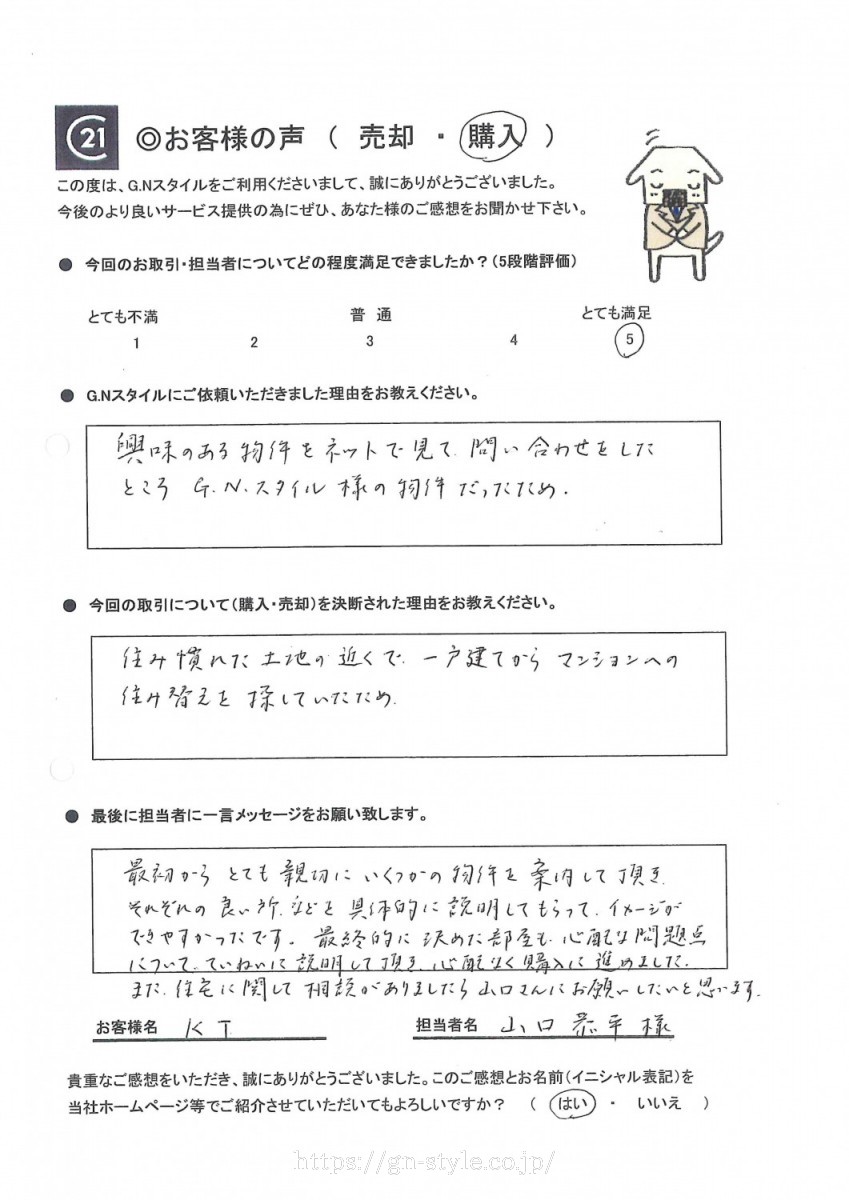 C21
◎お客様の声 ( 売却 ・ 購入 )
この度は、G.Nスタイルをご利用くださいまして、誠にありがとうございました。
今後のより良いサービス提供の為にぜひ、あなた様のご感想をお聞かせ下さい。
● 今回のお取引・担当者についてどの程度満足できましたか？(5段階評価)
とても不満 普通 とても満足
1 2 3 4 5
● G.Nスタイルにご依頼いただきました理由をお教えください。
興味のある物件をネットで見て、問い合わせをした
ところ G.N.スタイル様の物件だったため.
● 今回の取引について(購入・売却)を決断された理由をお教えください。
住み慣れた土地の近くで、一戸建てからマンションへの
住み替えを探していたため.
● 最後に担当者に一言メッセージをお願い致します。
最初からとても親切にいくつかの物件を案内して頂き
それぞれの良い所、などを具体的に説明してもらって、イメージが
できやすかったです。最終的に決めた部屋も、心配な問題点
について、ていねいに説明して頂き、心配なく購入に進めました.
また、住宅に関して相談がありましたら山口さんにお願いしたいと思います.
お客様名 KT 担当者名 山口恭平様
貴重なご感想をいただき、誠にありがとうございました。このご感想とお名前(イニシャル表記)を
当社ホームページ等でご紹介させていただいてもよろしいですか？ ( はい ・ いいえ )
https://gn-style.co.jp/